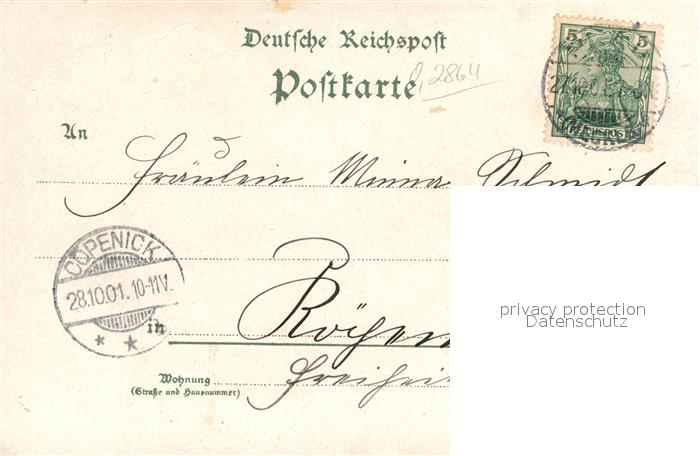 Deutsche Reichspost
Postkarte
2864
5 5
REICHSPOST
An
Fräulein Minna Schmidt
COPENICK
28.10.01.10-11V.
* *
in
Wohnung
(Straße und Hausnummer)
privacy protection
Datenschutz